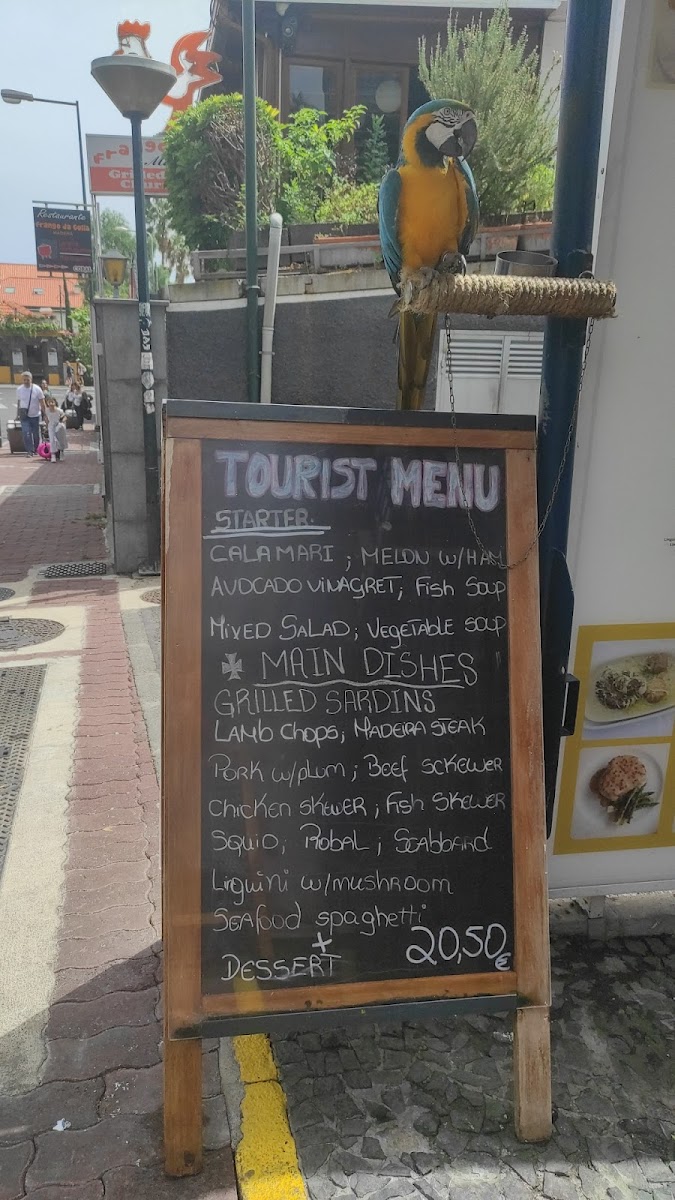 Frango
Grilled
Churr
Restaurante
Frango da Guia
TOURIST MENU
STARTER
CALAMARI ; MELON W/HAM
AVOCADO VINAGRET, Fish Soup
MIXED SALAD; VEGETABLE SOUP
MAIN DISHES
GRILLED SARDINS
LAMB CHOPS; MADEIRA STEAK
PORK W/PLUM ; BEEF SCKEWER
CHICKEN SKEWER ; FISH SKEWER
SQUID; ROBAL ; SCABBARD
LIRGUINI W/MUSHROOM
SEAFOOD SPAGHETTI
+
DESSERT 20,50€